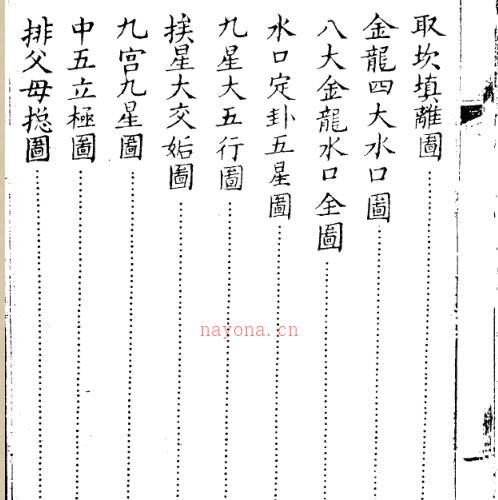 取坎填離圖
金龍四大水口圖
八大金龍水口全圖
水口定卦五星圖
九星大五行圖
挨星大交姤圖
九宫九星圖
中五立極圖
排父母捴圖
nayona.cn